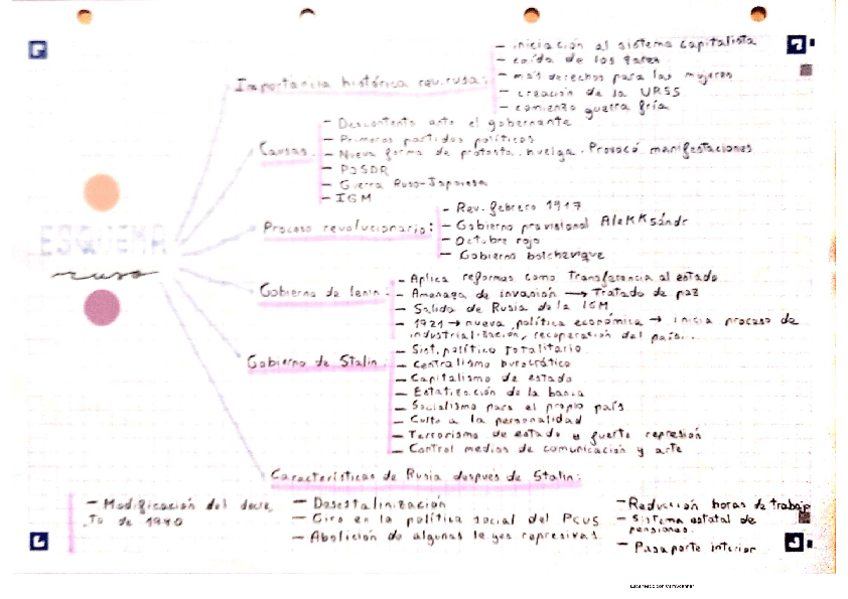 ESQUEMA
ruso
Importancia histórica rev. rusa:
- iniciación al sistema capitalista
- caída de los zares
- más derechos para las mujeres
- creación de la URSS
- comienzo guerra fría
Causas:
- Descontento ante el gobernante
- Primeros partidos políticos
- Nueva forma de protesta: huelga. Provocó manifestaciones
- PSSDR
- Guerra Ruso-Japonesa
- IGM
Proceso revolucionario:
- Rev. febrero 1917
- Gobierno provisional AleKKsándr
- Octubre rojo
- Gobierno bolchevique
Gobierno de Lenin:
- Aplica reformas como Transferencia al estado
- Amenaza de invasión → Tratado de paz
- Salida de Rusia de la IGM
- 1921 → nueva política económica → inicia proceso de
industrialización, recuperación del país...
Gobierno de Stalin:
- Sist. político totalitario
- Centralismo burocrático
- Capitalismo de estado
- Estatización de la banca
- Socialismo para el propio país
- Culto a la personalidad
- Terrorismo de estado y fuerte represión
- Control medios de comunicación y arte
Características de Rusia después de Stalin:
- Modificación del decre,
to de 1940
- Desestalinización
- Giro en la política social del PCUS
- Abolición de algunas leyes represivas
- Reducción horas de trabajo
- Sistema estatal de
pensiones.
- Pasaporte interior